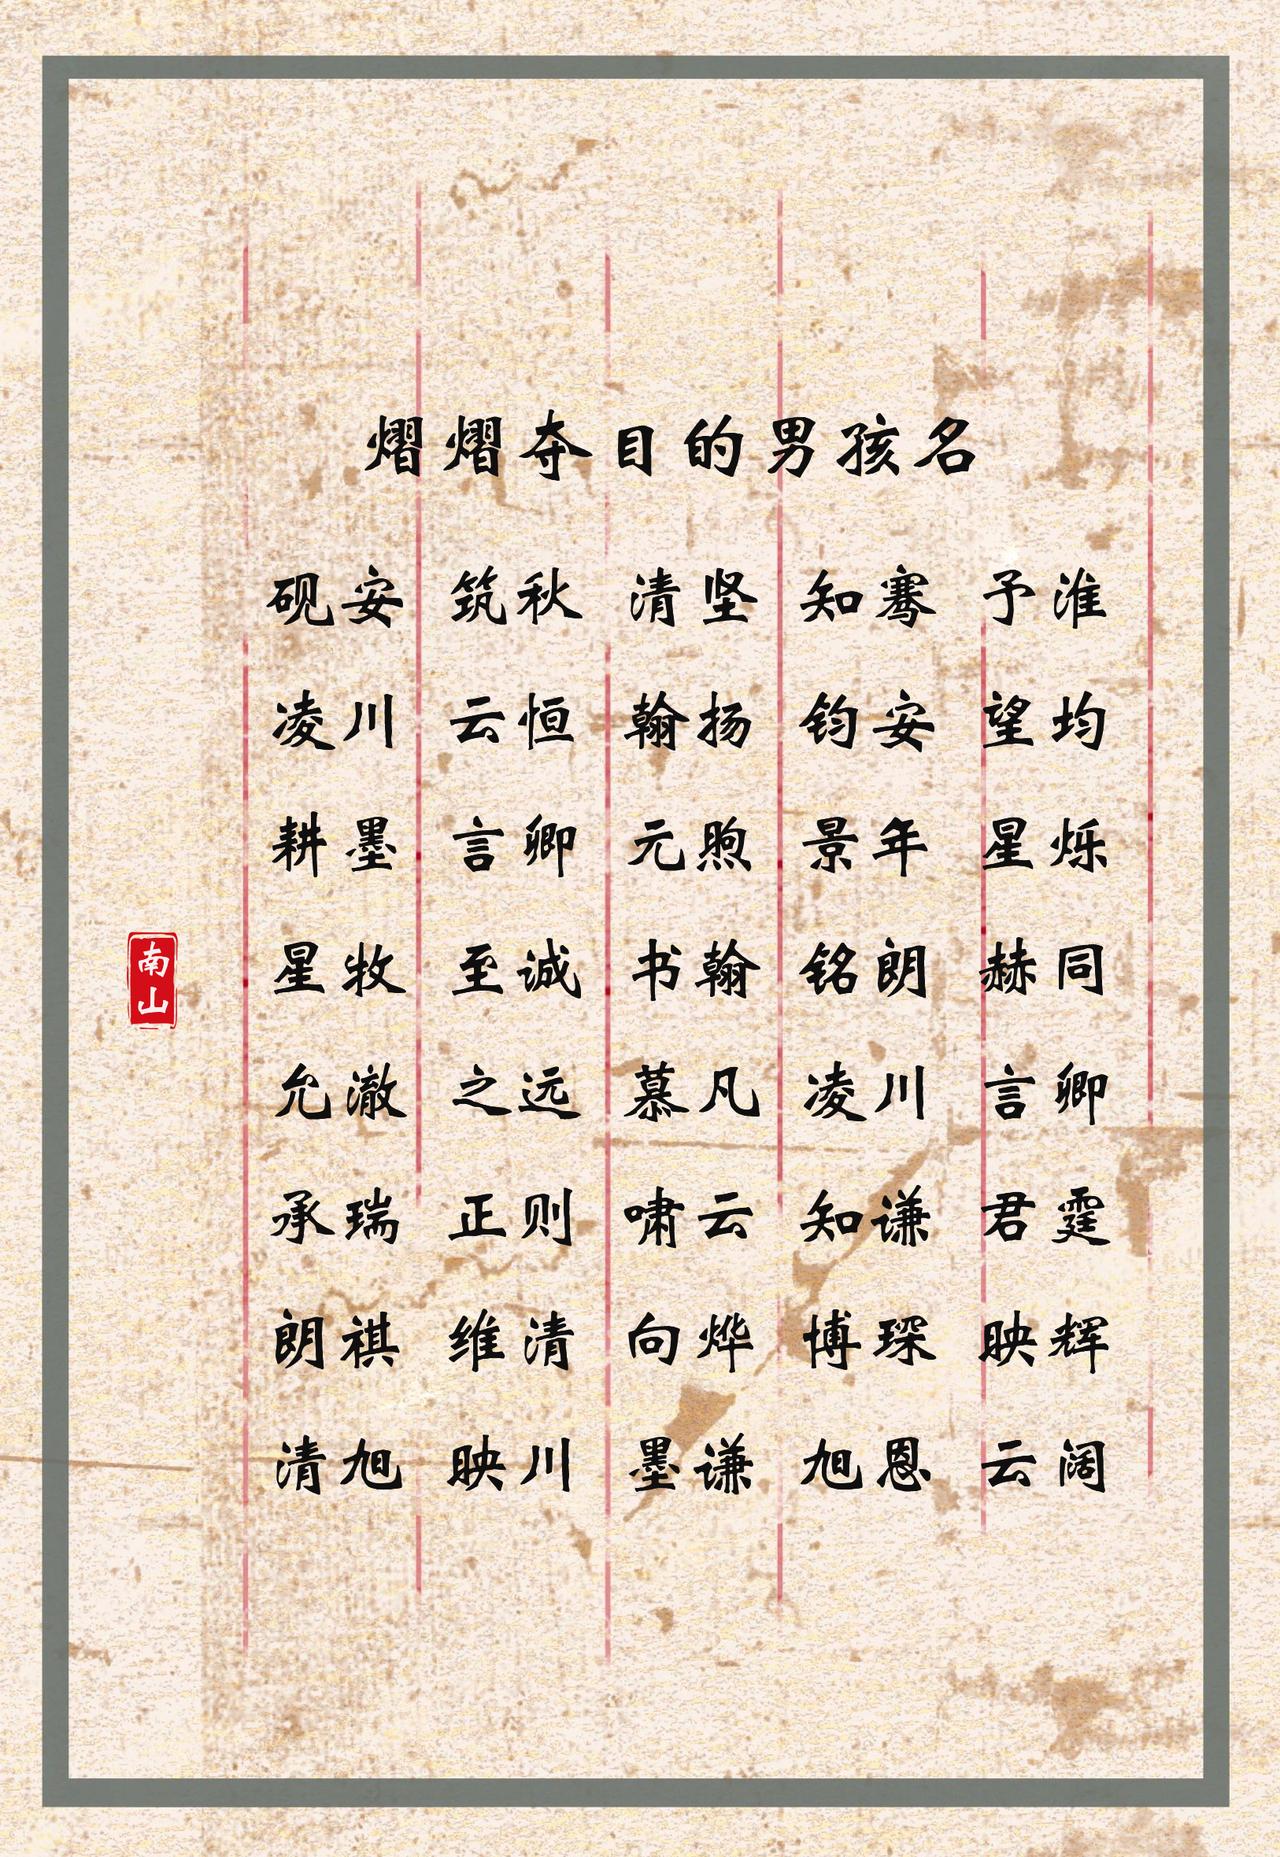 熠熠夺目的男孩名
砚安 筑秋 清坚 知骞 予淮
凌川 云恒 翰扬 钧安 望均
耕墨 言卿 元煦 景年 星烁
星牧 至诚 书翰 铭朗 赫同
允澈 之远 慕凡 凌川 言卿
承瑞 正则 啸云 知谦 君霆
朗祺 维清 向烨 博琛 映辉
清旭 映川 墨谦 旭恩 云阔
南山